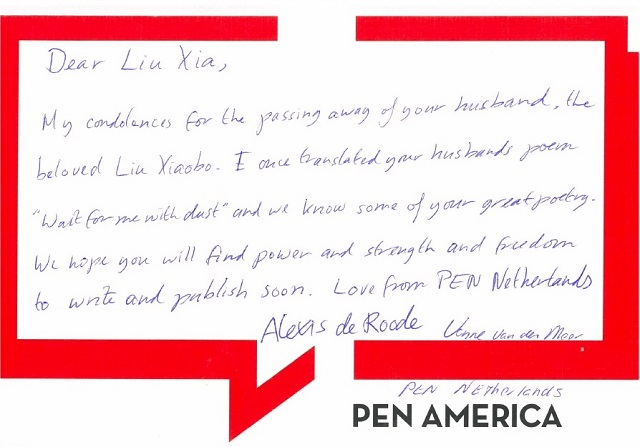 Dear Liu Xia,
My condolances for the passing away of your husband, the
beloved Liu Xiaobo. I once translated your husbands poem
"Wait for me with dust" and we know some of your great poetry.
We hope you will find power and strength and freedom
to write and publish soon. Love from PEN Netherlands
Alexis de Roode van der Meer
PEN Netherlands
PEN AMERICA